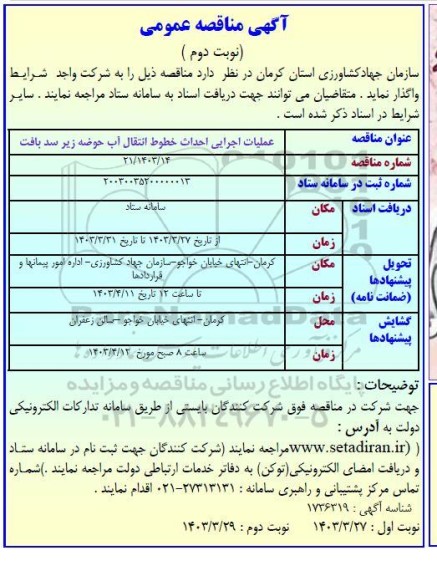 آگهی مناقصه عمومی
(نوبت دوم )
سازمان جهادکشاورزی استان کرمان در نظر دارد مناقصه ذیل را به شرکت واجد شرایط
واگذار نماید . متقاضیان می توانند جهت دریافت اسناد به سامانه ستاد مراجعه نمایند . سایر
شرایط در اسناد ذکر شده است .
عنوان مناقصه عملیات اجرایی احداث خطوط انتقال آب حوضه زیر سد بافت
شماره مناقصه ۲۱/۱۴۰۳/۱۴
شماره ثبت در سامانه ستاد ۲۰۰۳۰۰۳۵۲۰۰۰۰۰۱۳
دریافت اسناد مکان سامانه ستاد
زمان از تاریخ ۱۴۰۳/۳/۲۷ تا تاریخ ۱۴۰۳/۳/۳۱
تحویل پیشنهادها (ضمانت نامه) مکان کرمان-انتهای خیابان خواجو-سازمان جهاد کشاورزی- اداره امور پیمانها و
قراردادها
زمان تا ساعت ۱۲ تاریخ ۱۴۰۳/۴/۱۱
گشایش پیشنهادها محل کرمان- انتهای خیابان خواجو -سالن زعفران
زمان ساعت ۸ صبح مورخ ۱۴۰۳/۴/۱۲
توضیحات :
جهت شرکت در مناقصه فوق شرکت کنندگان بایستی از طریق سامانه تدارکات الکترونیکی
دولت به آدرس :
( (www.setadiran.irمراجعه نمایند (شرکت کنندگان جهت ثبت نام در سامانه ستاد
و دریافت امضای الکترونیکی(توکن) به دفاتر خدمات ارتباطی دولت مراجعه نمایند .)شماره
تماس مرکز پشتیبانی و راهبری سامانه : ۲۷۳۱۳۱۳۱-۰۲۱ اقدام نمایند .
شناسه آگهی : ۱۷۳۶۳۱۹
نوبت اول : ۱۴۰۳/۳/۲۷ نوبت دوم : ۱۴۰۳/۳/۲۹
پایگاه اطلاع رسانی مناقصه و مزایده
۰۲۱-۸۸۳۴۹۶۷۰-۵